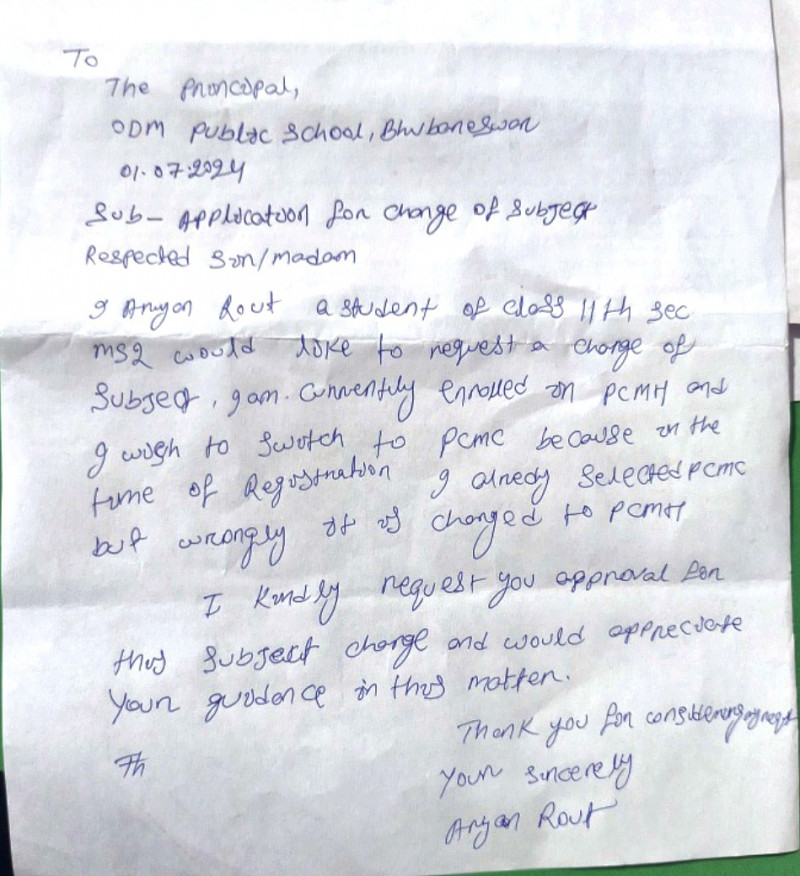 To
The Principal,
ODM Public School, Bhubaneswar
01.07.2024
Sub- Application for change of Subject
Respected Sir/madam
I Aryan Rout a student of class 11th sec
MS2 would like to request a change of
Subject, I am. Currently enrolled in PCMH and
I wish to Switch to PCMC because in the
time of Registration I alredy Selected PCMC
but wrongly it is changed to PCMH
I Kindly request you approval for
this Subject change and would appreciate
Your guidance in this matter.
Thank you for considering my
Th
Your Sincerely
Aryan Rout